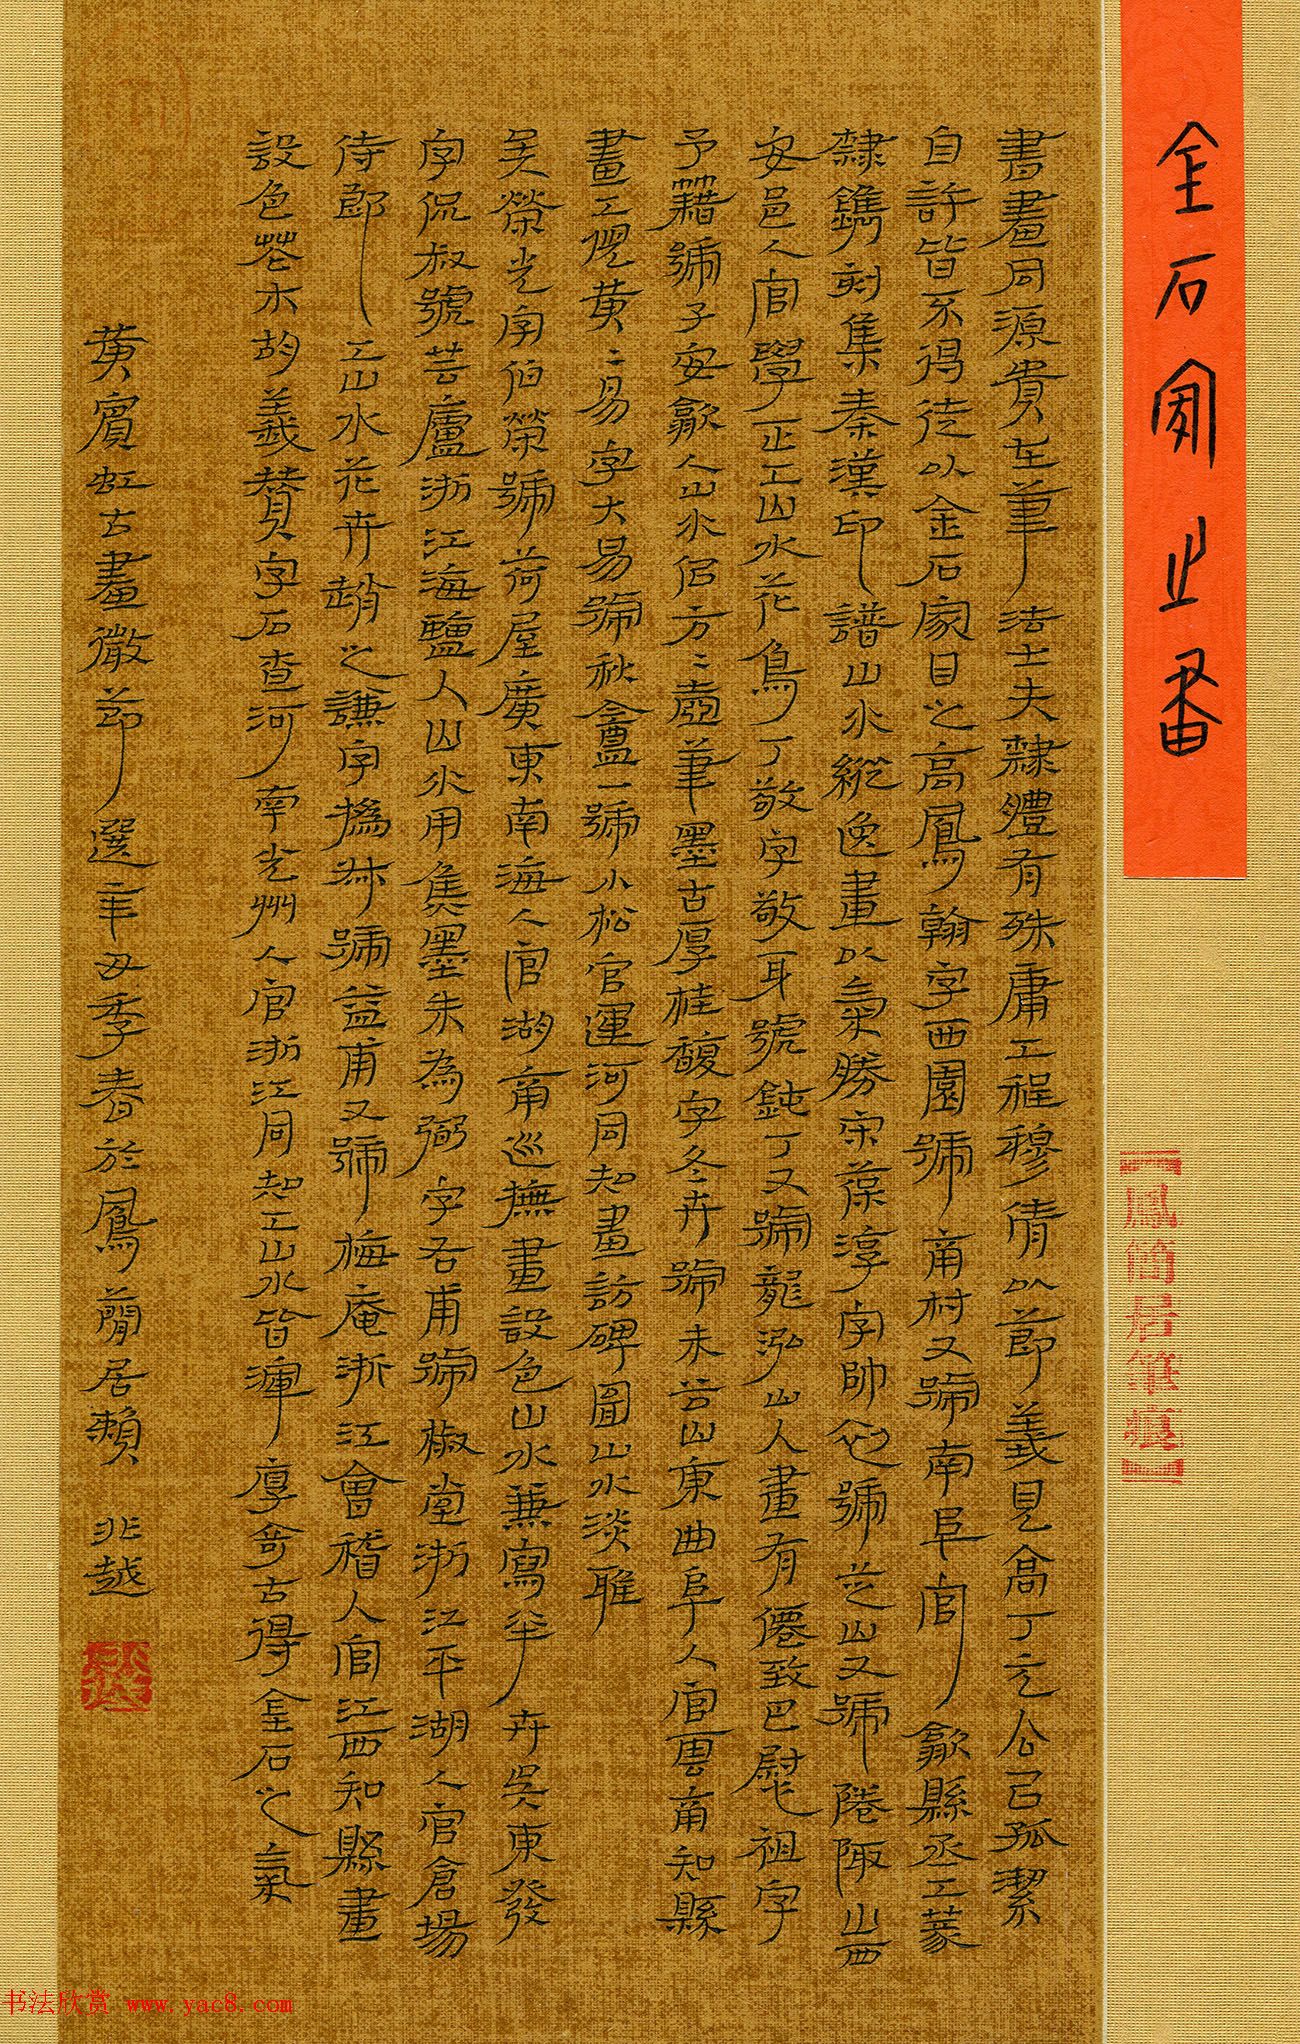 金石家之畫
書畫同源貴在筆法士夫隸體有殊庸工程穆倩以節義見高丁元公已孤潔
自許皆不得徒以金石家目之高鳳翰字西園號南村又號南阜官歙縣丞工篆
隸鐫刻集秦漢印譜山水縱逸畫以氣勝宋葆淳字帥初號芝山又號倦陬山西
安邑人官學正工山水花鳥丁敬字敬身號鈍丁又號龍泓山人畫有僊致巴慰祖字
予藉號子安歙人山水侶方方壺筆墨古厚桂馥字冬卉號未谷山東曲阜人官雲南知縣
畫工 黃黃易字大易號秋盦一號小松官運河同知畫訪碑圖山水淡雅
吳榮光字伯榮號荷屋廣東南海人官湖南巡撫畫設色山水兼寫花卉吳東發
字侃叔號芸廬浙江海鹽人山水用焦墨朱為弼字右甫號椒堂浙江平湖人官倉場
侍郎工山水花卉趙之謙字撝叔號益甫又號梅庵浙江會稽人官江西知縣畫
設色花木胡義贊字石查河南光州人官浙江同知工山水皆渾厚奇古得金石之氣
黃賓虹古畫微節選辛丑季春於鳳蕳居賴 北越
鳳簡居筆痕
书法欣赏 www.yac8.com